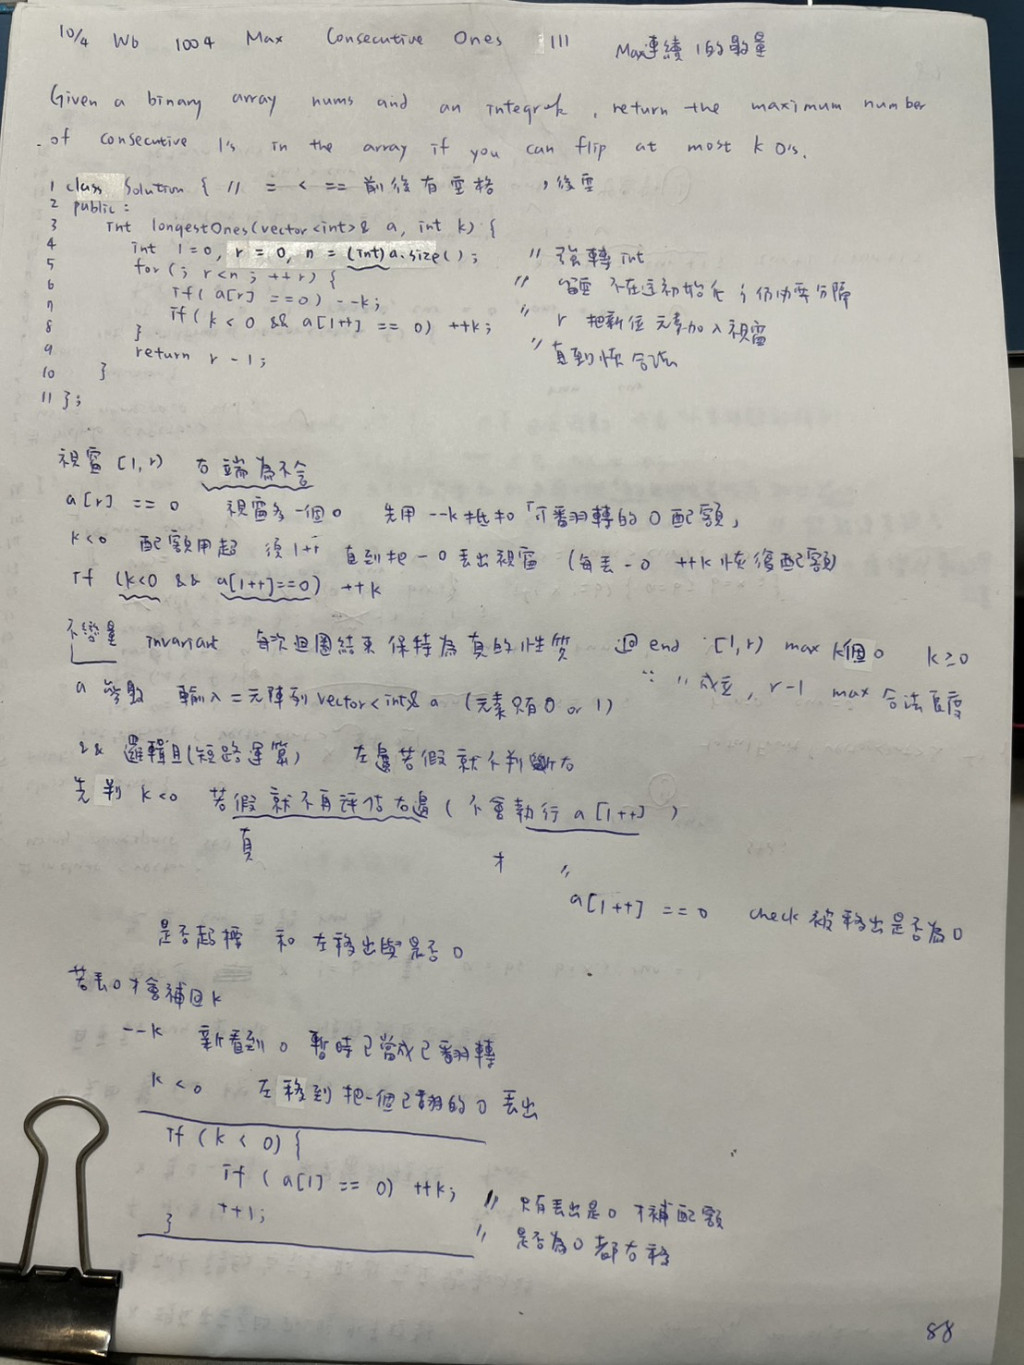 10/4 Wb 1004 Max Consecutive Ones III Max連續1的數量
Given a binary array nums and an integer k, return the maximum number
of consecutive 1's in the array if you can flip at most k 0's.
1 class Solution { // = < == 前後有空格 ,後空
2 public:
3 int longestOnes(vector<int>& a, int k) {
4 int l=0, r = 0, n = (int)a.size(); // 強轉int
5 for(; r<n ; ++r) { // 不在這初始化 ; 仍要分隔
6 if( a[r] ==0) --k; // r 把新位元素加入視窗
7 if( k<0 && a[l++] == 0) ++k; // 直到恢合法
8 }
9 return r - l;
10 }
11 };
視窗 [l, r) 右端為不含
a[r] == 0 視窗多一個0 先用 --k 抵扣「可翻轉的0配額」
k<0 配額用超 須l++ 直到把一0丟出視窗 (每丟一0 ++k 恢復配額)
if (k<0 && a[l++]==0) ++k
不變量 invariant 每次迴圈結束保持為真的性質 迴end [l, r) max k個0 k≥0
∵ 〃 成立, r-l max 合法長度
a 參數 輸入二元陣列vector<int>& a (元素只有0 or 1)
&& 邏輯且(短路運算) 左邊若假就不判斷右
先判 k<0 若假就不再評估右邊 ( 不會執行 a[l++] )
真 才 〃
a[l++] == 0 check 被移出是否為0
是否超標 和 左移出是否0
若丟0才會補回k
--k 新看到0 暫時已當成已翻轉
k<0 左移到把一個已翻的0丟出
if (k < 0) {
if ( a[l] == 0) ++k; // 只有丟出是0才補配額
++l; // 是否為0都右移
}
88